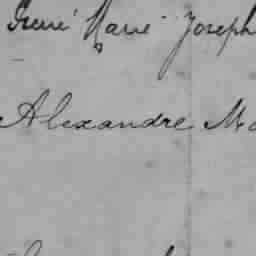 Irené Marie Joseph
Alexandre Ma